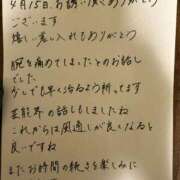 4月15日.お誘い頂くありがとう
ございます
嬉しい差し入れもありがとう
腕を痛めてしまったとのお話し
でした.
少しでも早く治るよう祈してます
芸能界の話もしましたね
これからは風通しが良くなると
良いですね
またお時間の続きを楽しみに